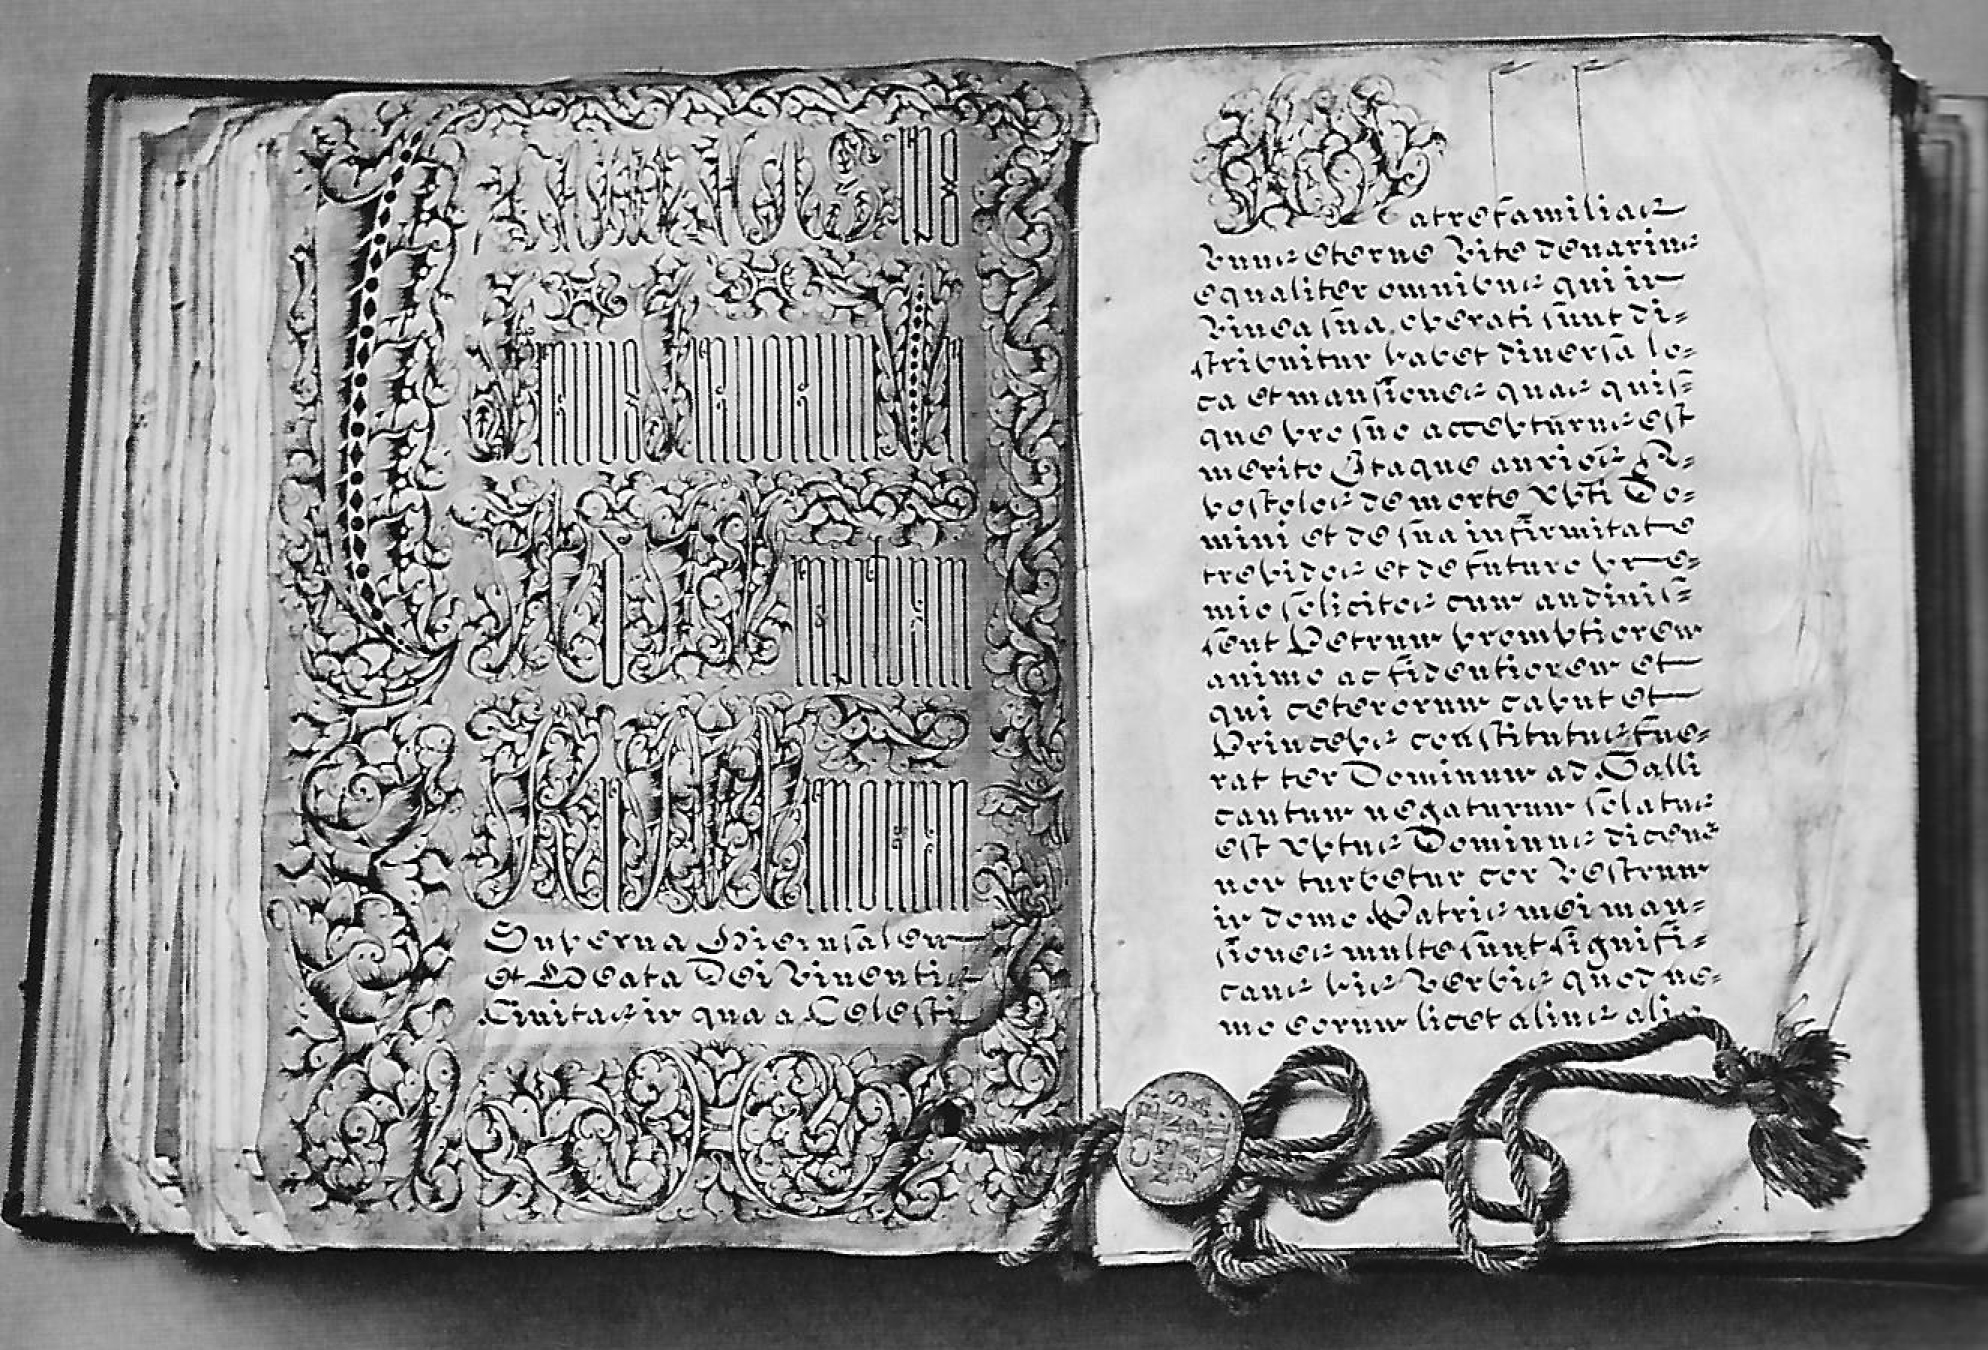 CLEMENS eps
Servus Servorum Dei
AD PERpetuam
REI Memoriam
Superna Hierusalem
et Beata Dei viventis
Civitas in qua a Celesti
Patrefamilias
unus eterne vite denarius
equaliter omnibus qui in
vinea sua operati sunt di=
stribuitur habet diversa lo=
ca et mansiones quas quis=
que pro suo accepturus est
merito Itaque anxios A=
postolos de morte xpti Do=
mini et de sua infirmitate
trepidos et de futuro pre=
mio solicitos cum audivis=
sent Petrum promptiorem
animo ac fidentiorem et
qui ceterorum caput et
Princeps constitutus fue=
rat ter Dominum ad Galli
cantum negaturum solatus
est xptus Dominus dicens
non turbetur cor vestrum
in domo Patris mei man=
siones multe sunt signifi=
cans his verbis quod ne=
mo eorum licet alius alio
CLE.
MENS.
PAPA
VII.